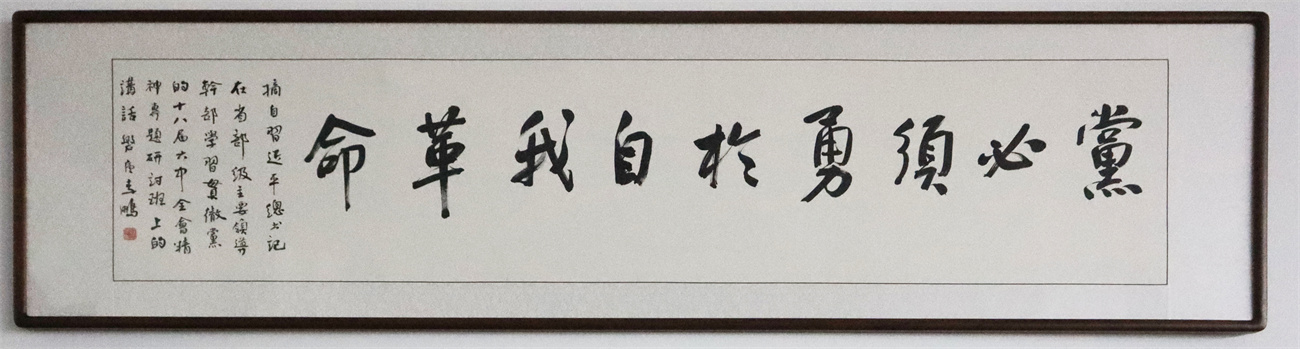 黨必須勇於自我革命
摘自習近平總书记
在省部级主要領導
幹部学習貫徹黨
的十八届六中全會精
神專題研討班上的
講話 鵬